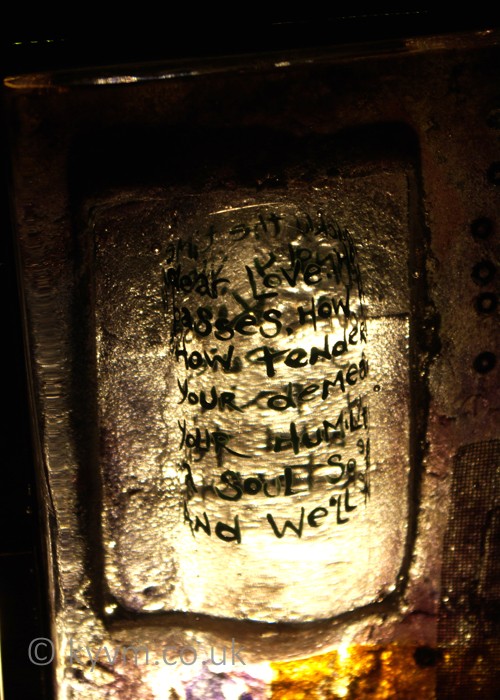 the
Dear Love
passes. How
How tender
Your demea
Your Humili
A SOUL So
And Well
© kyvni.co.uk